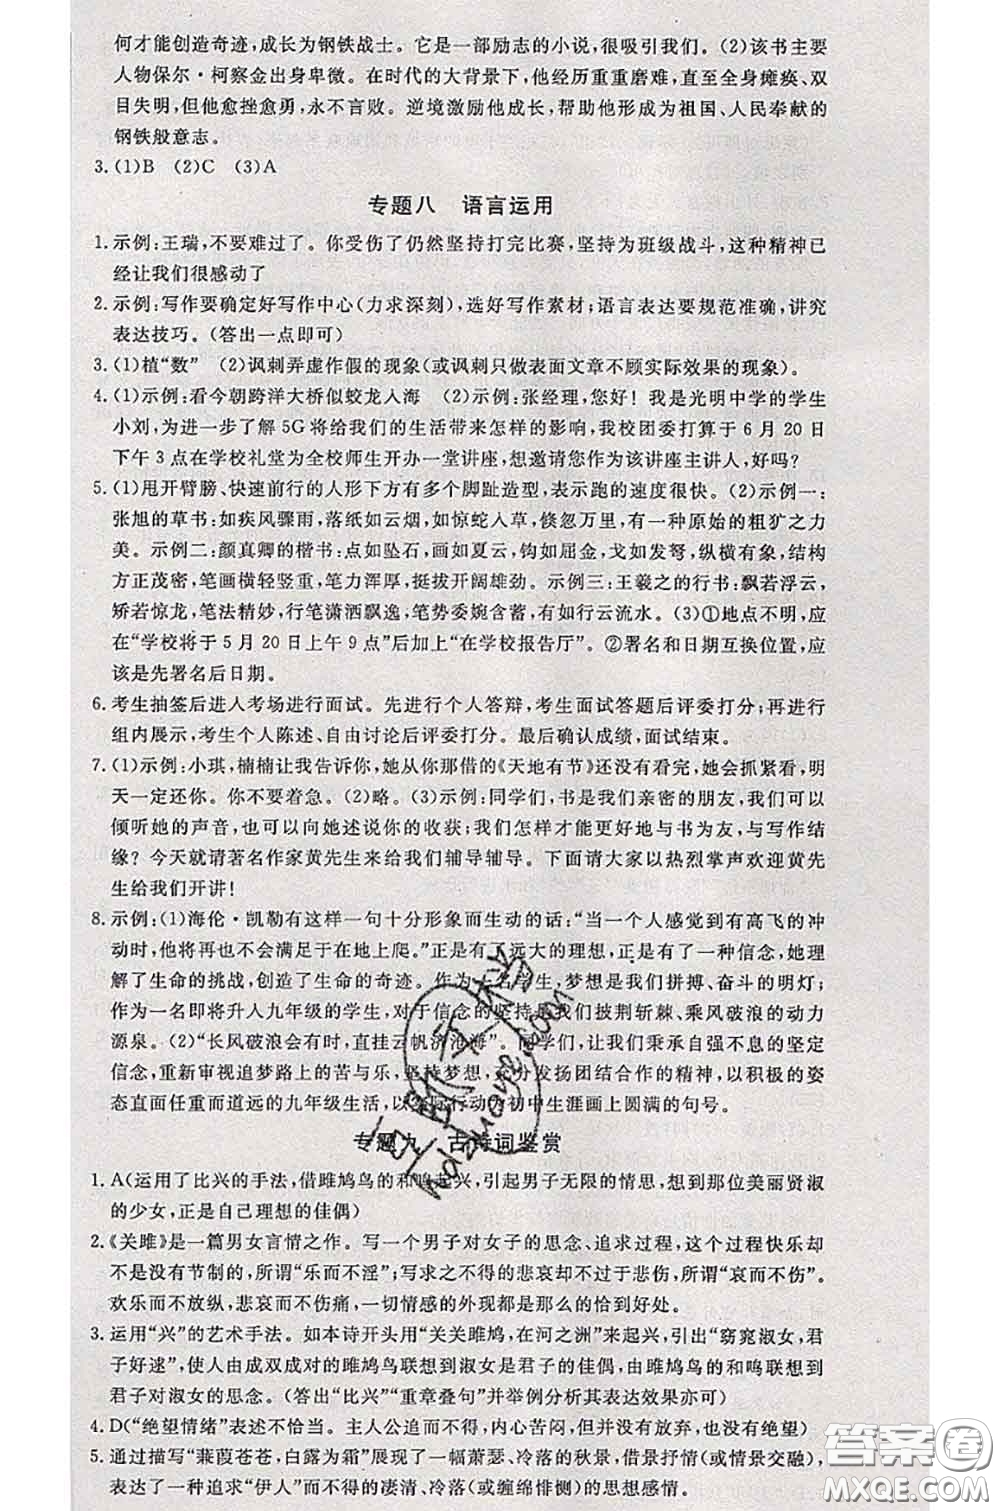 何才能创造奇迹,成长为钢铁战士。它是一部励志的小说,很吸引我们。(2)该书主要
人物保尔·柯察金出身卑微。在时代的大背景下,他经历重重磨难,直至全身瘫痪、双
目失明,但他愈挫愈勇,永不言败。逆境激励他成长,帮助他形成为祖国、人民奉献的
钢铁般意志。
3.(1)B (2)C (3)A
专题八 语言运用
1.示例:王瑞,不要难过了。你受伤了仍然坚持打完比赛,坚持为班级战斗,这种精神已
经让我们很感动了
2.示例:写作要确定好写作中心(力求深刻),选好写作素材;语言表达要规范准确,讲究
表达技巧。(答出一点即可)
3.(1)植“数” (2)讽刺弄虚作假的现象(或讽刺只做表面文章不顾实际效果的现象)。
4.(1)示例:看今朝跨洋大桥似蛟龙入海 (2)示例:张经理,您好!我是光明中学的学生
小刘,为进一步了解5G将给我们的生活带来怎样的影响,我校团委打算于6月20日
下午3点在学校礼堂为全校师生开办一堂讲座,想邀请您作为该讲座主讲人,好吗?
5.(1)甩开臂膀、快速前行的人形下方有多个脚趾造型,表示跑的速度很快。(2)示例一:
张旭的草书:如疾风骤雨,落纸如云烟,如惊蛇入草,倏忽万里,有一种原始的粗犷之力
美。示例二:颜真卿的楷书:点如坠石,画如夏云,钩如屈金,戈如发弩,纵横有象,结构
方正茂密,笔画横轻竖重,笔力浑厚,挺拔开阔雄劲。示例三:王羲之的行书:飘若浮云,
矫若惊龙,笔法精妙,行笔潇洒飘逸,笔势委婉含蓄,有如行云流水。(3)①地点不明,应
在“学校将于5月20日上午9点”后加上“在学校报告厅”。②署名和日期互换位置,应
该是先署名后日期。
6.考生抽签后进入考场进行面试。先进行个人答辩,考生面试答题后评委打分;再进行
组内展示,考生个人陈述、自由讨论后评委打分。最后确认成绩,面试结束。
7.(1)示例:小琪,楠楠让我告诉你,她从你那借的《天地有节》还没有看完,她会抓紧看,明
天一定还你。你不要着急。(2)略。(3)示例:同学们,书是我们亲密的朋友,我们可以
倾听她的声音,也可以向她述说你的收获;我们怎样才能更好地与书为友,与写作结
缘?今天就请著名作家黄先生来给我们辅导辅导。下面请大家以热烈掌声欢迎黄先
生给我们开讲!
8.示例:(1)海伦·凯勒有这样一句十分形象而生动的话:“当一个人感觉到有高飞的冲
动时,他将再也不会满足于在地上爬。”正是有了远大的理想,正是有了一种信念,她理
解了生命的挑战,创造了生命的奇迹。作为一名学生,梦想是我们拼搏、奋斗的明灯;
作为一名即将升入九年级的学生,对于信念的坚持是我们披荆斩棘、乘风破浪的动力
源泉。(2)“长风破浪会有时,直挂云帆济沧海”。同学们,让我们秉承自强不息的坚定
信念,重新审视追梦路上的苦与乐,坚持梦想,充分发扬团结合作的精神,以积极的姿
态直面任重而道远的九年级生活,以实际行动为初中生涯画上圆满的句号。
专题九 古诗词鉴赏
1.A(运用了比兴的手法,借雎鸠鸟的和鸣起兴,引起男子无限的情思,想到那位美丽贤淑
的少女,正是自己理想的佳偶)
2.《关雎》是一篇男女言情之作。写一个男子对女子的思念、追求过程,这个过程快乐却
不是没有节制的,所谓“乐而不淫”;写求之不得的悲哀却不过于悲伤,所谓“哀而不伤”。
欢乐而不放纵,悲哀而不伤痛,一切情感的外现都是那么的恰到好处。
3.运用“兴”的艺术手法。如本诗开头用“关关雎鸠,在河之洲”来起兴,引出“窈窕淑女,君
子好逑”,使人由成双成对的雎鸠鸟联想到淑女是君子的佳偶,由雎鸠鸟的和鸣联想到
君子对淑女的思念。(答出“比兴”“重章叠句”并举例分析其表达效果亦可)
4.D(“绝望情绪”表述不恰当。主人公追而不得,内心苦闷,但并没有放弃,也没有绝望)
5.通过描写“蒹葭苍苍,白露为霜”展现了一幅萧瑟、冷落的秋景,借景抒情(或情景交融),
表达了一种追求“伊人”而不得的凄清、冷落(或缠绵悱恻)的思想感情。
答案圈
MXQE.COM